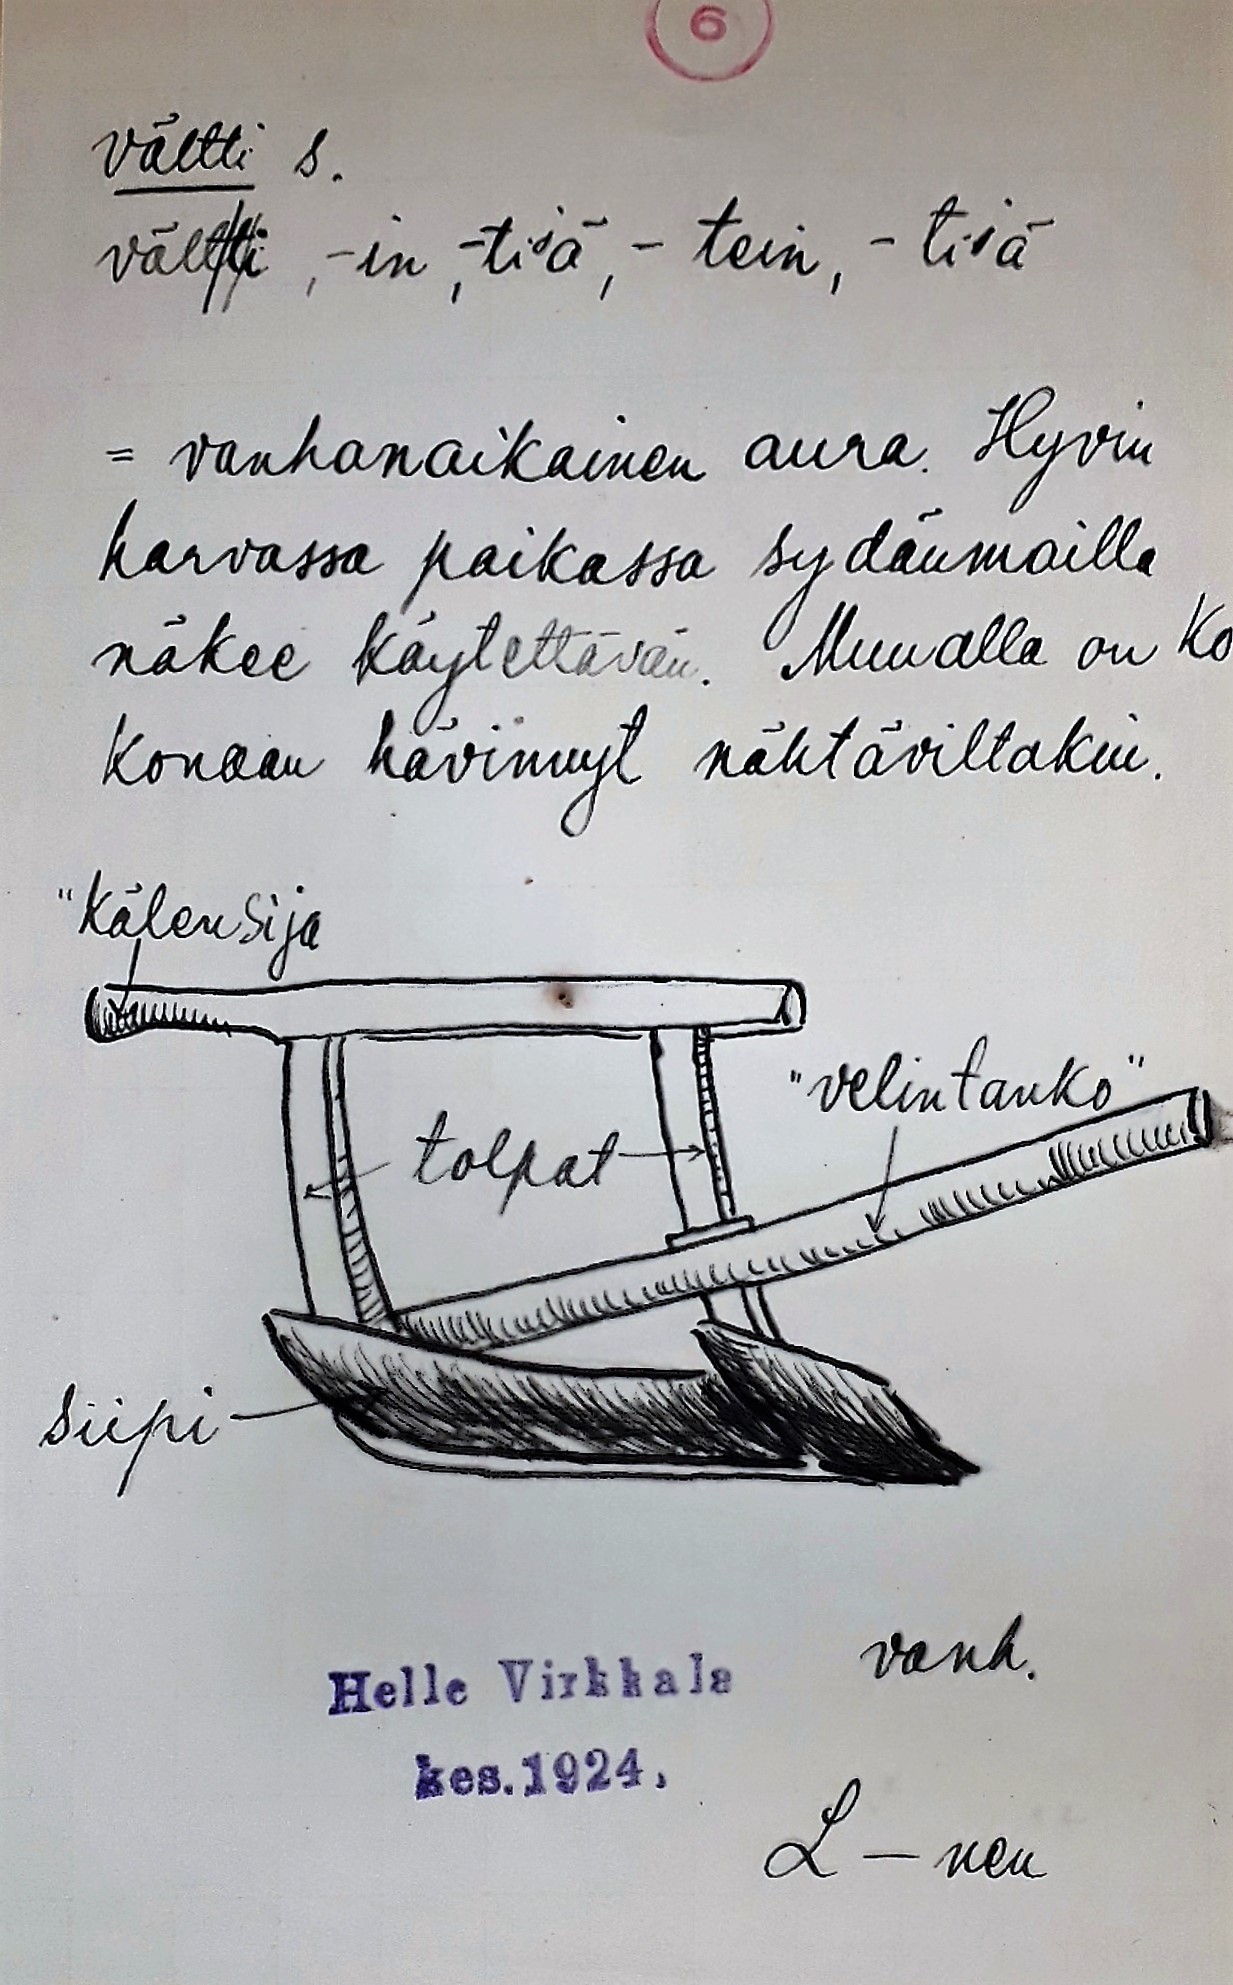 6
vältti s.
vältti, -in, -tiä, -tein, -tiä
= vanhanaikainen aura. Hyvin
harvassa paikassa sydänmailla
näkee käytettävän. Muualla on ko
konaan hävinnyt nähtäviltäkin.
"Käten sija
"velintanko"
tolpat
siipi
vanh.
Helle Virkkala
kes.1924.
L — nen